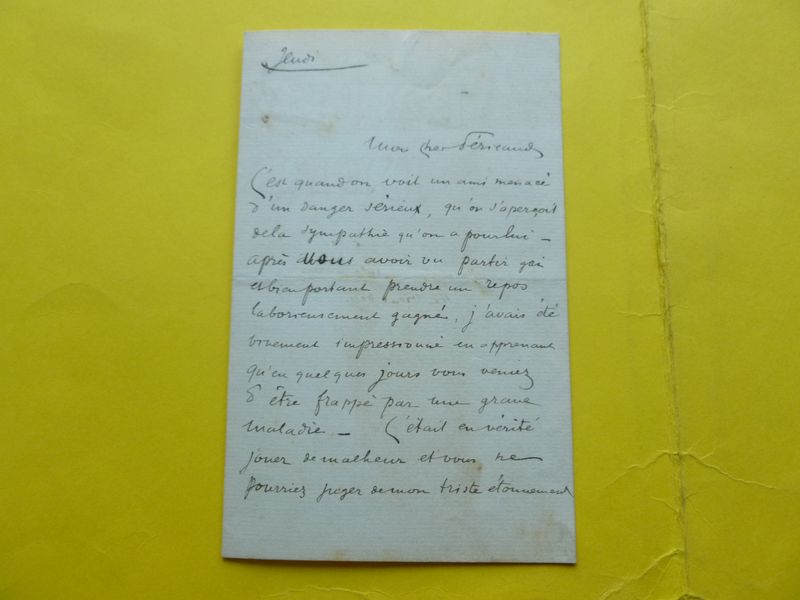 Jeudi
Mon cher Péricaud
C'est quand on voit un ami menacé
d'un danger sérieux, qu'on s'aperçoit
de la sympathie qu'on a pour lui —
après vous avoir vu partir gai
et bien portant prendre un repos
laborieusement gagné, j'avais été
vivement impressionné en apprenant
qu'en quelques jours vous veniez
d'être frappé par une grave
maladie — C'était en vérité
jouer de malheur et vous ne
pourriez juger de mon triste étonnement